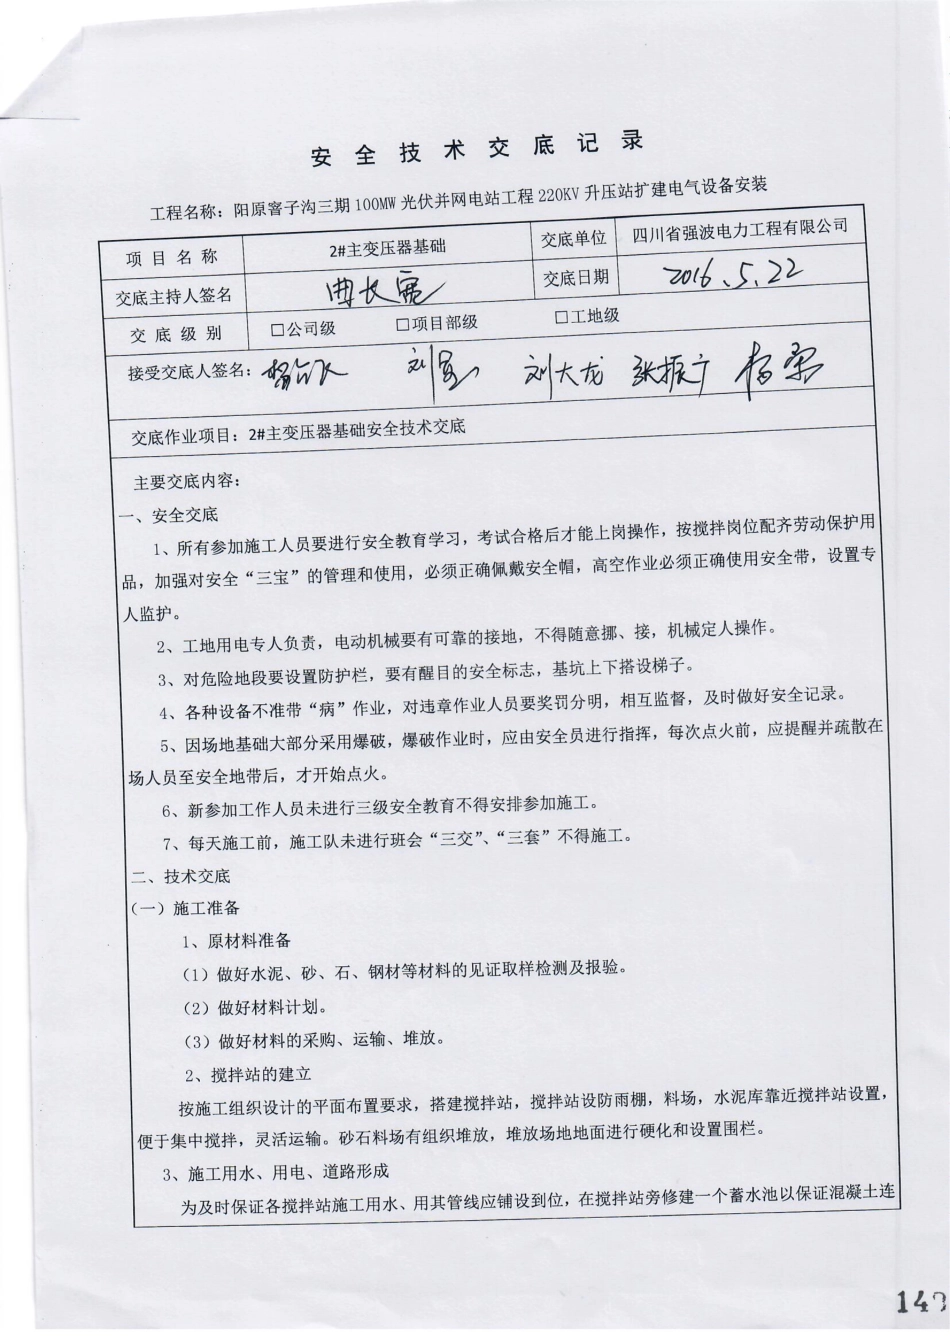 安全技术交底记录
工程名称：阳原窨子沟三期100MW光伏并网电站工程220KV升压站扩建电气设备安装
项目名称 2#主变压器基础 交底单位 四川省强波电力工程有限公司
交底主持人签名 交底日期 2016.5.22
交底级别 □公司级 □项目部级 □工地级
接受交底人签名： 刘大龙 张振广
交底作业项目：2#主变压器基础安全技术交底
主要交底内容：
一、安全交底
1、所有参加施工人员要进行安全教育学习，考试合格后才能上岗操作，按搅拌岗位配齐劳动保护用
品，加强对安全“三宝”的管理和使用，必须正确佩戴安全帽，高空作业必须正确使用安全带，设置专
人监护。
2、工地用电专人负责，电动机械要有可靠的接地，不得随意挪、接，机械定人操作。
3、对危险地段要设置防护栏，要有醒目的安全标志，基坑上下搭设梯子。
4、各种设备不准带“病”作业，对违章作业人员要奖罚分明，相互监督，及时做好安全记录。
5、因场地基础大部分采用爆破，爆破作业时，应由安全员进行指挥，每次点火前，应提醒并疏散在
场人员至安全地带后，才开始点火。
6、新参加工作人员未进行三级安全教育不得安排参加施工。
7、每天施工前，施工队未进行班会“三交”、“三套”不得施工。
二、技术交底
（一）施工准备
1、原材料准备
（1）做好水泥、砂、石、钢材等材料的见证取样检测及报验。
（2）做好材料计划。
（3）做好材料的采购、运输、堆放。
2、搅拌站的建立
按施工组织设计的平面布置要求，搭建搅拌站，搅拌站设防雨棚，料场，水泥库靠近搅拌站设置，
便于集中搅拌，灵活运输。砂石料场有组织堆放，堆放场地地面进行硬化和设置围栏。
3、施工用水、用电、道路形成
为及时保证各搅拌站施工用水、用其管线应铺设到位，在搅拌站旁修建一个蓄水池以保证混凝土连